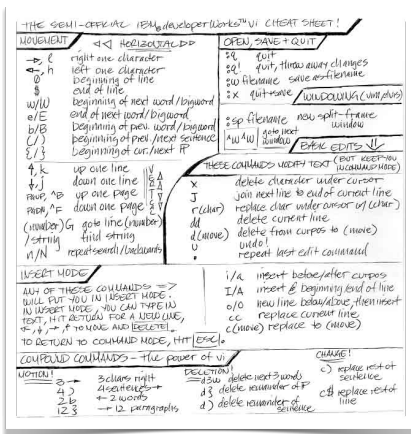 THE SEMI-OFFICIAL IBM developerWorks Vi CHEAT SHEET!
MOVEMENT
◁◁ HORIZONTAL ▷▷
→, l right one character
←, h left one character
0 beginning of line
$ end of line
w/W beginning of next word/bigword
e/E end of next word/bigword
b/B beginning of prev. word/bigword
(/) beginning of prev./next sentence
{/} beginning of cur./next ¶
↑, k up one line
↓, j down one line
PGUP, ^B up one page
PGDN, ^F down one page
VERTICAL
(number)G goto line (number)
/string find string
n/N repeat search/backwards
OPEN, SAVE + QUIT
:q quit
:q! quit, throw away changes
:w filename save as filename
:x quit + save
WINDOWING (vim, elvis)
:sp filename new split-frame window
^W^W goto next window
BASIC EDITS
THESE COMMANDS MODIFY TEXT (BUT KEEP YOU IN COMMAND MODE)
x delete character under cursor
J join next line to end of current line
r(char) replace char under cursor w/(char)
dd delete current line
d(move) delete from curpos to (move)
u undo!
. repeat last edit command
INSERT MODE
ANY OF THESE COMMANDS =>
WILL PUT YOU IN INSERT MODE.
IN INSERT MODE, YOU CAN TYPE IN
TEXT, HIT RETURN FOR A NEW LINE,
←, ↓, →, ↑ TO MOVE AND DELETE.
TO RETURN TO COMMAND MODE, HIT ESC.
i/a insert before/after curpos
I/A insert @ beginning/end of line
o/O new line below/above, then insert
cc replace current line
c(move) replace to (move)
COMPOUND COMMANDS - the power of vi
MOTION!
3→ 3 chars right
4) 4 sentences →
2b ← 2 words
12} → 12 paragraphs
DELETION!
d3w delete next 3 words
d} delete remainder of ¶
d) delete remainder of sentence
CHANGE!
c) replace rest of sentence
c$ replace rest of line